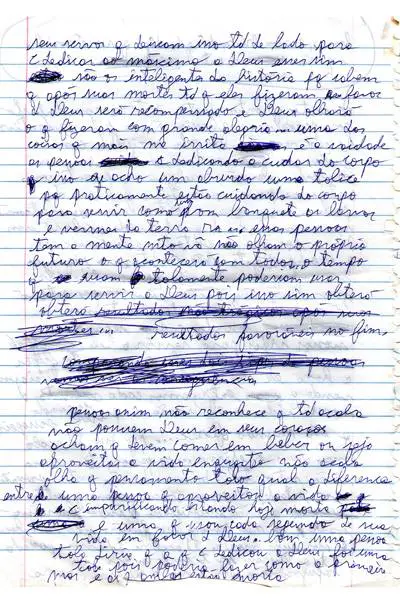 seus servos q deixam isso td de lado para
se dedicar ao máximo a Deus esses sim
são os inteligentes da história pq sabem
q após suas mortes td q eles fizeram em favor
d Deus será recompensado e Deus olhará
o q fizeram com grande alegria uma das
coisas q mais me irrita é a vaidade
as pessoas se dedicando a cuidar do corpo
isso eu acho um absurdo uma tolice
pq praticamente estão cuidando do corpo
para servir como bom banquete as larvas
e vermes da terra essas pessoas
tem a mente não olham o próprio
futuro o q acontecerá com todos, o tempo
q usam tolamente poderiam usar
para servir a Deus pois isso sim obterá
resultados favoráveis no fim
pessoas assim não reconhece q td acaba
não possuem Deus em seus corações
acham q devem comer em beber ou seja
aproveitar a vida enquanto não acaba
olha q pensamento tolo qual a diferença
entre uma pessoa q aproveitou a vida
estando hoje morta
e uma q usou cada segundo de sua
vida em favor d Deus. bom uma pessoa
tola diria q a q se dedicou a Deus foi uma
tola pois poderia fazer como a primeira
mas e as 2 ambas estão morta